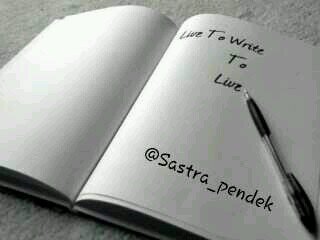 Live To Write
To
Live
@Sastra_pendek